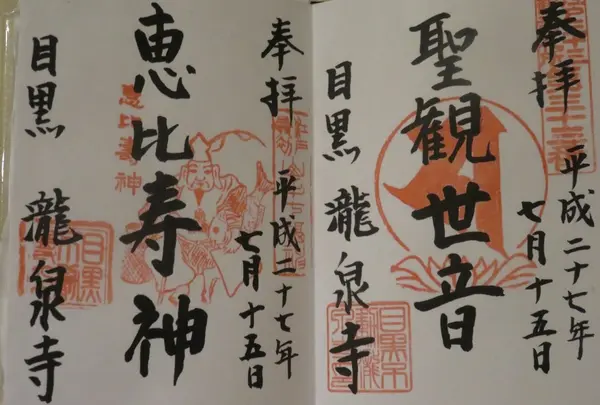 奉拝
平成二十七年
七月十五日
聖観世音
目黒 瀧泉寺
奉拝
平成二十七年
七月十五日
恵比寿神
恵比寿神
目黒 瀧泉寺